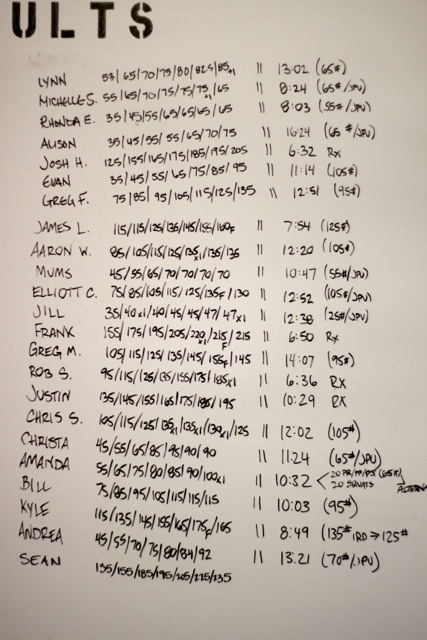 ULTS
LYNN 53/65/70/75/80/825/85x1 || 13:02 (65#)
MICHELLE S. 55/65/70/75/75/75/65 || 8:24 (65#/JPU)
RHONDA E. 35/45/55/65/65/65/65 || 8:03 (55#/JPU)
ALISON 35/45/55/55/65/70/75 || 16:24 (65#/JPU)
JOSH H. 125/155/165/175/185/195/205 || 6:32 RX
EVAN 35/45/55/65/75/85/95 || 11:14 (105#)
GREG F. 75/85/95/105/115/125/135 || 12:51 (95#)
JAMES L. 115/115/125/135/145/155/160F || 7:54 (125#)
AARON W. 85/105/115/125/135x1/135/135 || 12:20 (105#)
MUMS 45/55/65/70/70/70/70 || 10:47 (55#/JPU)
ELLIOTT C. 75/85/105/115/125/135F/130 || 12:52 (105#/JPU)
JILL 35/40x1/40/45/45/47/47x1 || 12:38 (25#/JPU)
FRANK 155/175/195/205/220x1/215F/215 || 6:50 RX
GREG M. 105/115/125/135/145/155F/145 || 14:07 (95#)
ROB S. 95/115/125/135/155/175/185x1 || 6:36 RX
JUSTIN 135/145/155/165/175/185/195 || 10:29 RX
CHRIS S. 105/115/125/135x1/135x1/130x1/125 || 12:02 (105#)
CHRISTA 45/55/65/85/95/90/90 || 11:24 (65#/JPU)
AMANDA 55/65/75/80/85/90/100x1 || 10:32 20 SQUATS
BILL 75/85/95/105/115/115/115 || 10:03 (95#)
KYLE 115/135/145/155/165/175F/165 || 8:49 (135# 1RD → 125#
ANDREA 45/55/70/75/80/84/92 || 13:21 (70#/JPU)
SEAN 135/155/185/195/205/225/235